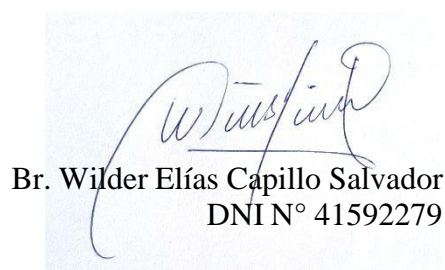 Br. Wilder Elías Capillo Salvador
DNI N° 41592279